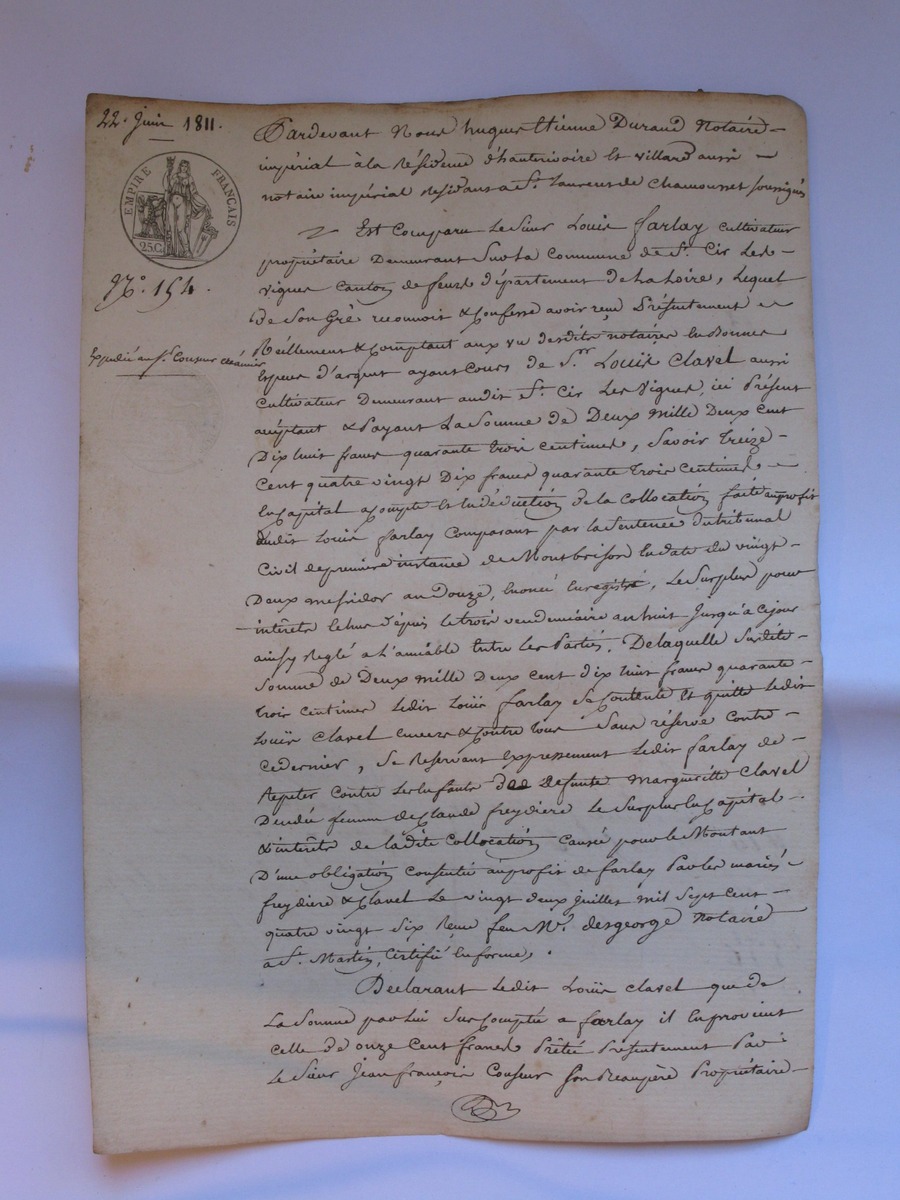 22. Juin 1811.
EMPIRE FRANÇAIS
25 C.
N.º 154.
Expedié au S.r Couseur créancier
Pardevant Nous hugues Etienne Durand Notaire
impérial à la Résidence d'hauterivoire et Villard aussi
notaire impérial Residant a S.t Laurent de Chamousset soussignés
Est Comparu Le Sieur Louis farlay Cultivateur
propriétaire Demeurant Sur la Commune de S.t Cir Les
Vignes Canton de feurs département de La Loire, Lequel
de Son Gré reconnoit & Confesse avoir reçu Présentement
Réellement & Comptant aux vu desdits notaires En Bonnes
Especes d'argent ayant Cours de S.r Louis Clavel aussi
Cultivateur Demeurant audit S.t Cir Les Vignes, ici Présent
acceptant & Payant La Somme de Deux Mille Deux Cent
Dix huit francs quarante trois Centimes, Savoir Treize
Cent quatre vingt Dix francs quarante trois Centimes
En Capital a Compte Et En déduction de la Collocation faite au profit
dudit Louis farlay Comparant par la Sentence du tribunal
Civil de premiere instance de Montbrison En date du vingt
Deux messidor an Douze, Enoncé Enregistré, Le Surplus pour
intérêts Echus depuis Le trois vendemiaire an huit Jusqu'à Ce jour
ainsy Reglé a L'amiable Entre Les Parties. De laquelle Susdite
Somme de Deux Mille Deux Cent dix huit francs quarante
trois Centimes Ledit Louis farlay Se Contente Et quitte Ledit
Louis Clavel Envers & Contre Tous Sans réserve Contre
Ce dernier, Se Reservant Expressement Ledit farlay de
Repeter Contre Les Enfants de Defunte Margueritte Clavel
Decedée femme de Claude freydiere Le Surplus En Capital
& intérêts de Ladite Collocation Causée pour le Montant
D'une obligation Consentie au profit de farlay Par les mariés
freydiere & Clavel Le vingt deux juillet mil Sept Cent
quatre vingt Six Reçue feu M.e desgeorge notaire
a S.t Martin, Certifié En forme.
Declarant Ledit Louis Clavel que de
La Somme par Lui Sus Comptée a farlay il En provient
Celle de onze Cent francs Prêtée Présentement Par
Le Sieur Jean françois Couseur Son Beaupère Propriétaire